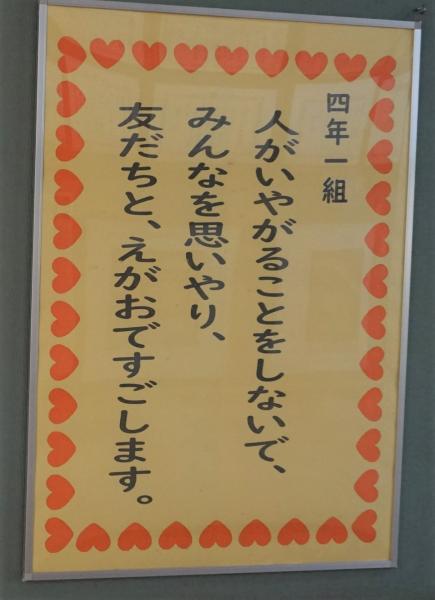 四年一組
人がいやがることをしないで、
みんなを思いやり、
友だちと、えがおですごします。